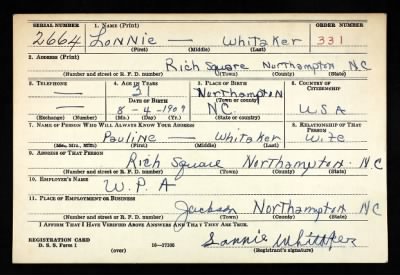 SERIAL NUMBER 1. NAME (Print) ORDER NUMBER
2664 LONNIE — WhiTAKER 331
(First) (Middle) (Last)
2. ADDRESS (Print)
Rich Square Northampton N.C
(Number and street or R. F. D. number) (Town) (County) (State)
3. TELEPHONE 4. AGE IN YEARS 5. PLACE OF BIRTH 6. COUNTRY OF CITIZENSHIP
— 31 Northampton
DATE OF BIRTH (Town or county)
— 8-4-1909 NC. U.S.A
(Exchange) (Number) (Mo.) (Day) (Yr.) (State or country)
7. NAME OF PERSON WHO WILL ALWAYS KNOW YOUR ADDRESS 8. RELATIONSHIP OF THAT PERSON
Pauline — Whitaker Wife
(Mr., Mrs., Miss) (First) (Middle) (Last)
9. ADDRESS OF THAT PERSON
Rich Square Northampton. N.C
(Number and street or R. F. D. number) (Town) (County) (State)
10. EMPLOYER'S NAME
W.P.A
11. PLACE OF EMPLOYMENT OR BUSINESS
Jackson Northampton NC
(Number and street or R. F. D. number) (Town) (County) (State)
I AFFIRM THAT I HAVE VERIFIED ABOVE ANSWERS AND THAT THEY ARE TRUE.
REGISTRATION CARD Lonnie Whitaker
D. S. S. Form 1 (over) 16—17105 (Registrant's signature)